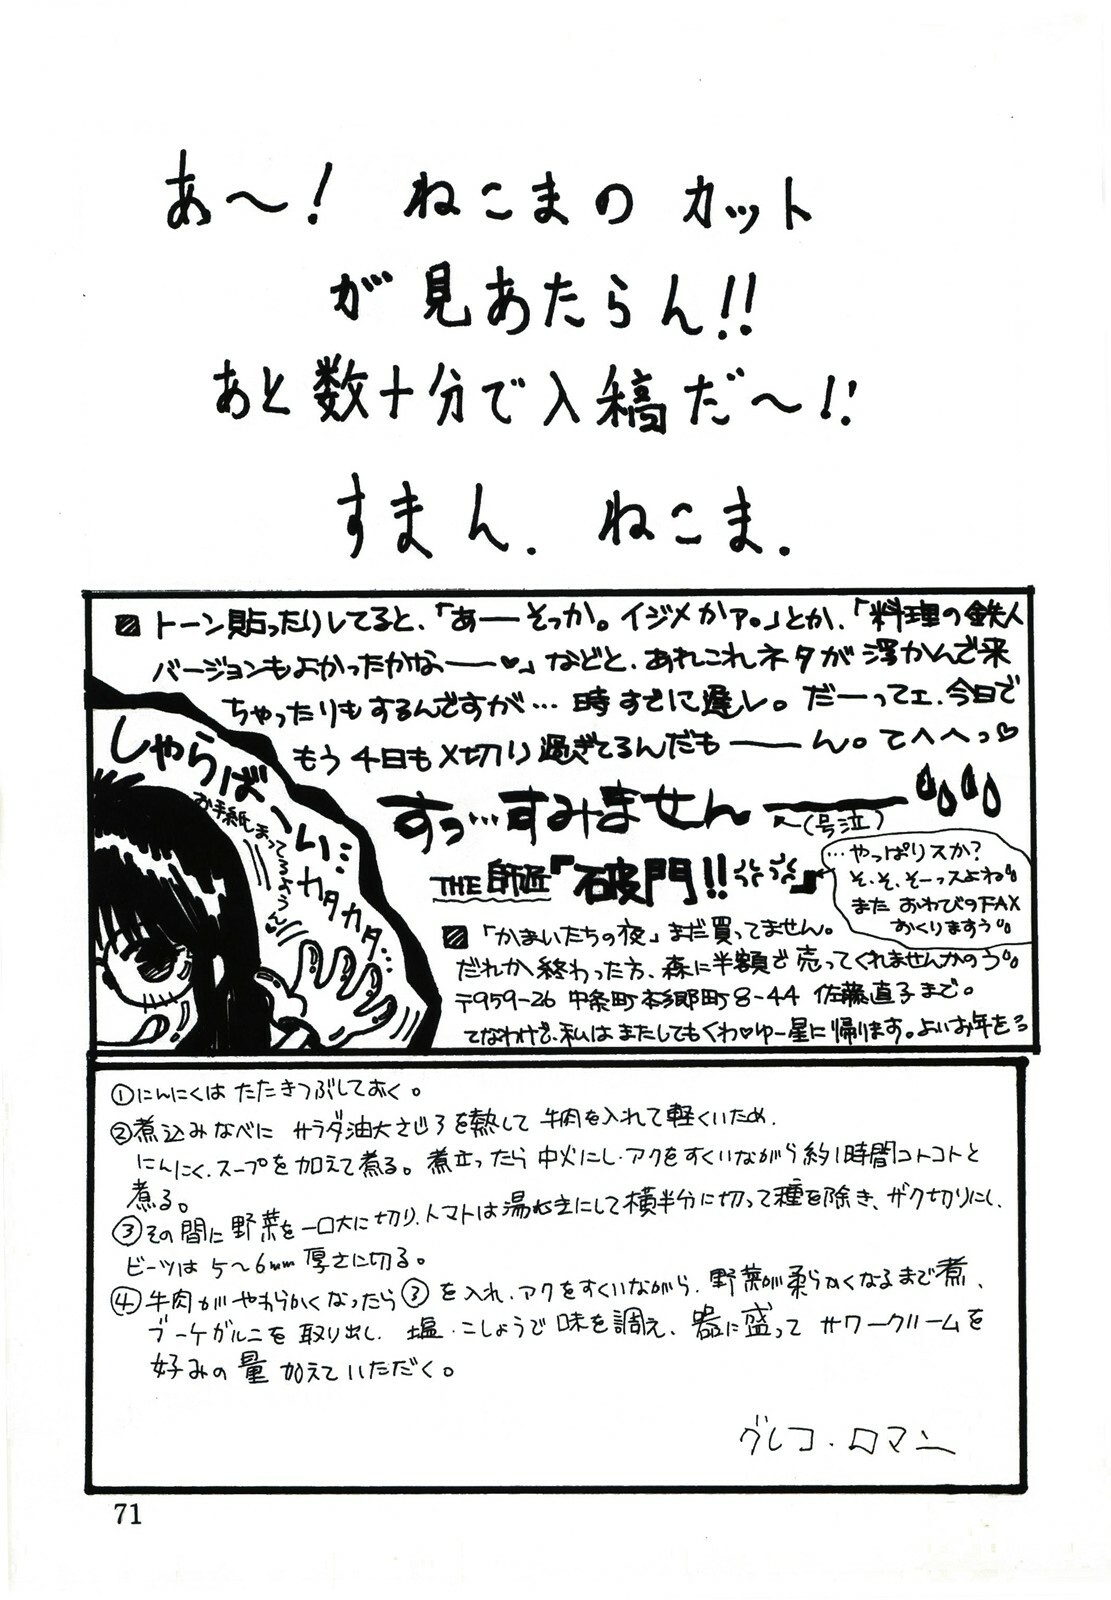 あ〜! ねこまの カット
が見あたらん!!
あと数十分で入稿だ〜!!
すまん. ねこま.
トーン貼ったりしてると、「あーーそっか。イジメかァ。」とか、「料理の鉄人
バージョンもよかったかなーー♥」などと、あれこれネタが浮かんで来
ちゃったりもするんですが… 時すでに遅し。だーーってェ、今日で
もう4日も〆切り過ぎてるんだもーーん。てへへっ♡
すっ…すみません———
←(号泣)
THE 師匠『破門!!』
…やっぱりスか?
そ、そ、そーっスよね
また おわびのFAX
おくりますぅ
しゃらば〜い…
お手紙まってるよぅん
カタカタ…
「かまいたちの夜」まだ買ってません。
だれか終わった方、森に半額で売ってくれませんかのう
〒959-26 中条町本郷町8-44 佐藤直子まで。
てなわけで、私は またしてもくわ♡ゆー星に帰ります。よいお年をろ
①にんにくは たたきつぶしておく。
②煮込みなべに サラダ油大さじ3を熱して 牛肉を入れて軽くいため.
にんにく、スープを加えて煮る。煮立ったら 中火にし・アクをすくいながら約1時間コトコトと
煮る。
③その間に野菜を一口大に切り、トマトは湯むきにして横半分に切って種を除き、ザク切りにし、
ビーツは5〜6mm厚さに切る。
④牛肉がやわらかくなったら③を入れ、アクをすくいながら、野菜が柔らかくなるまで煮、
ブーケガルニを取り出し、塩・こしょうで味を調え、器に盛って サワークリームを
好みの量加えていただく。
グレコ・ロマン
71